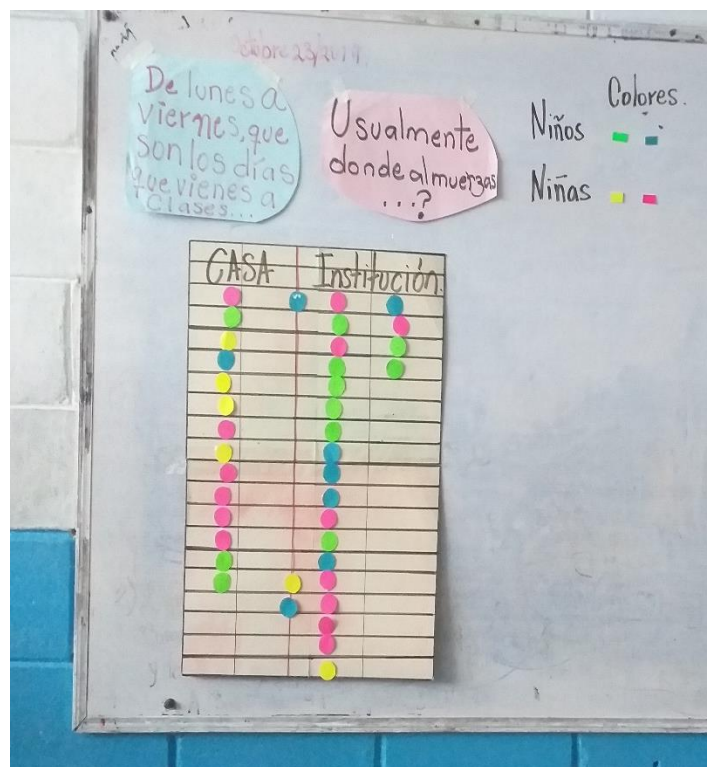 Octobre 23/2019
De lunes a
viernes, que
son los días
que vienes a
clases...
Usualmente
donde almuerzas
...?
Colores.
Niños
Niñas
CASA Institución.